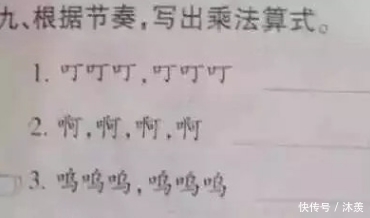 九、根据节奏,写出乘法算式。
1. 叮叮叮,叮叮叮
2. 啊,啊,啊,啊
3. 呜呜呜,呜呜呜
快传号/沐羡